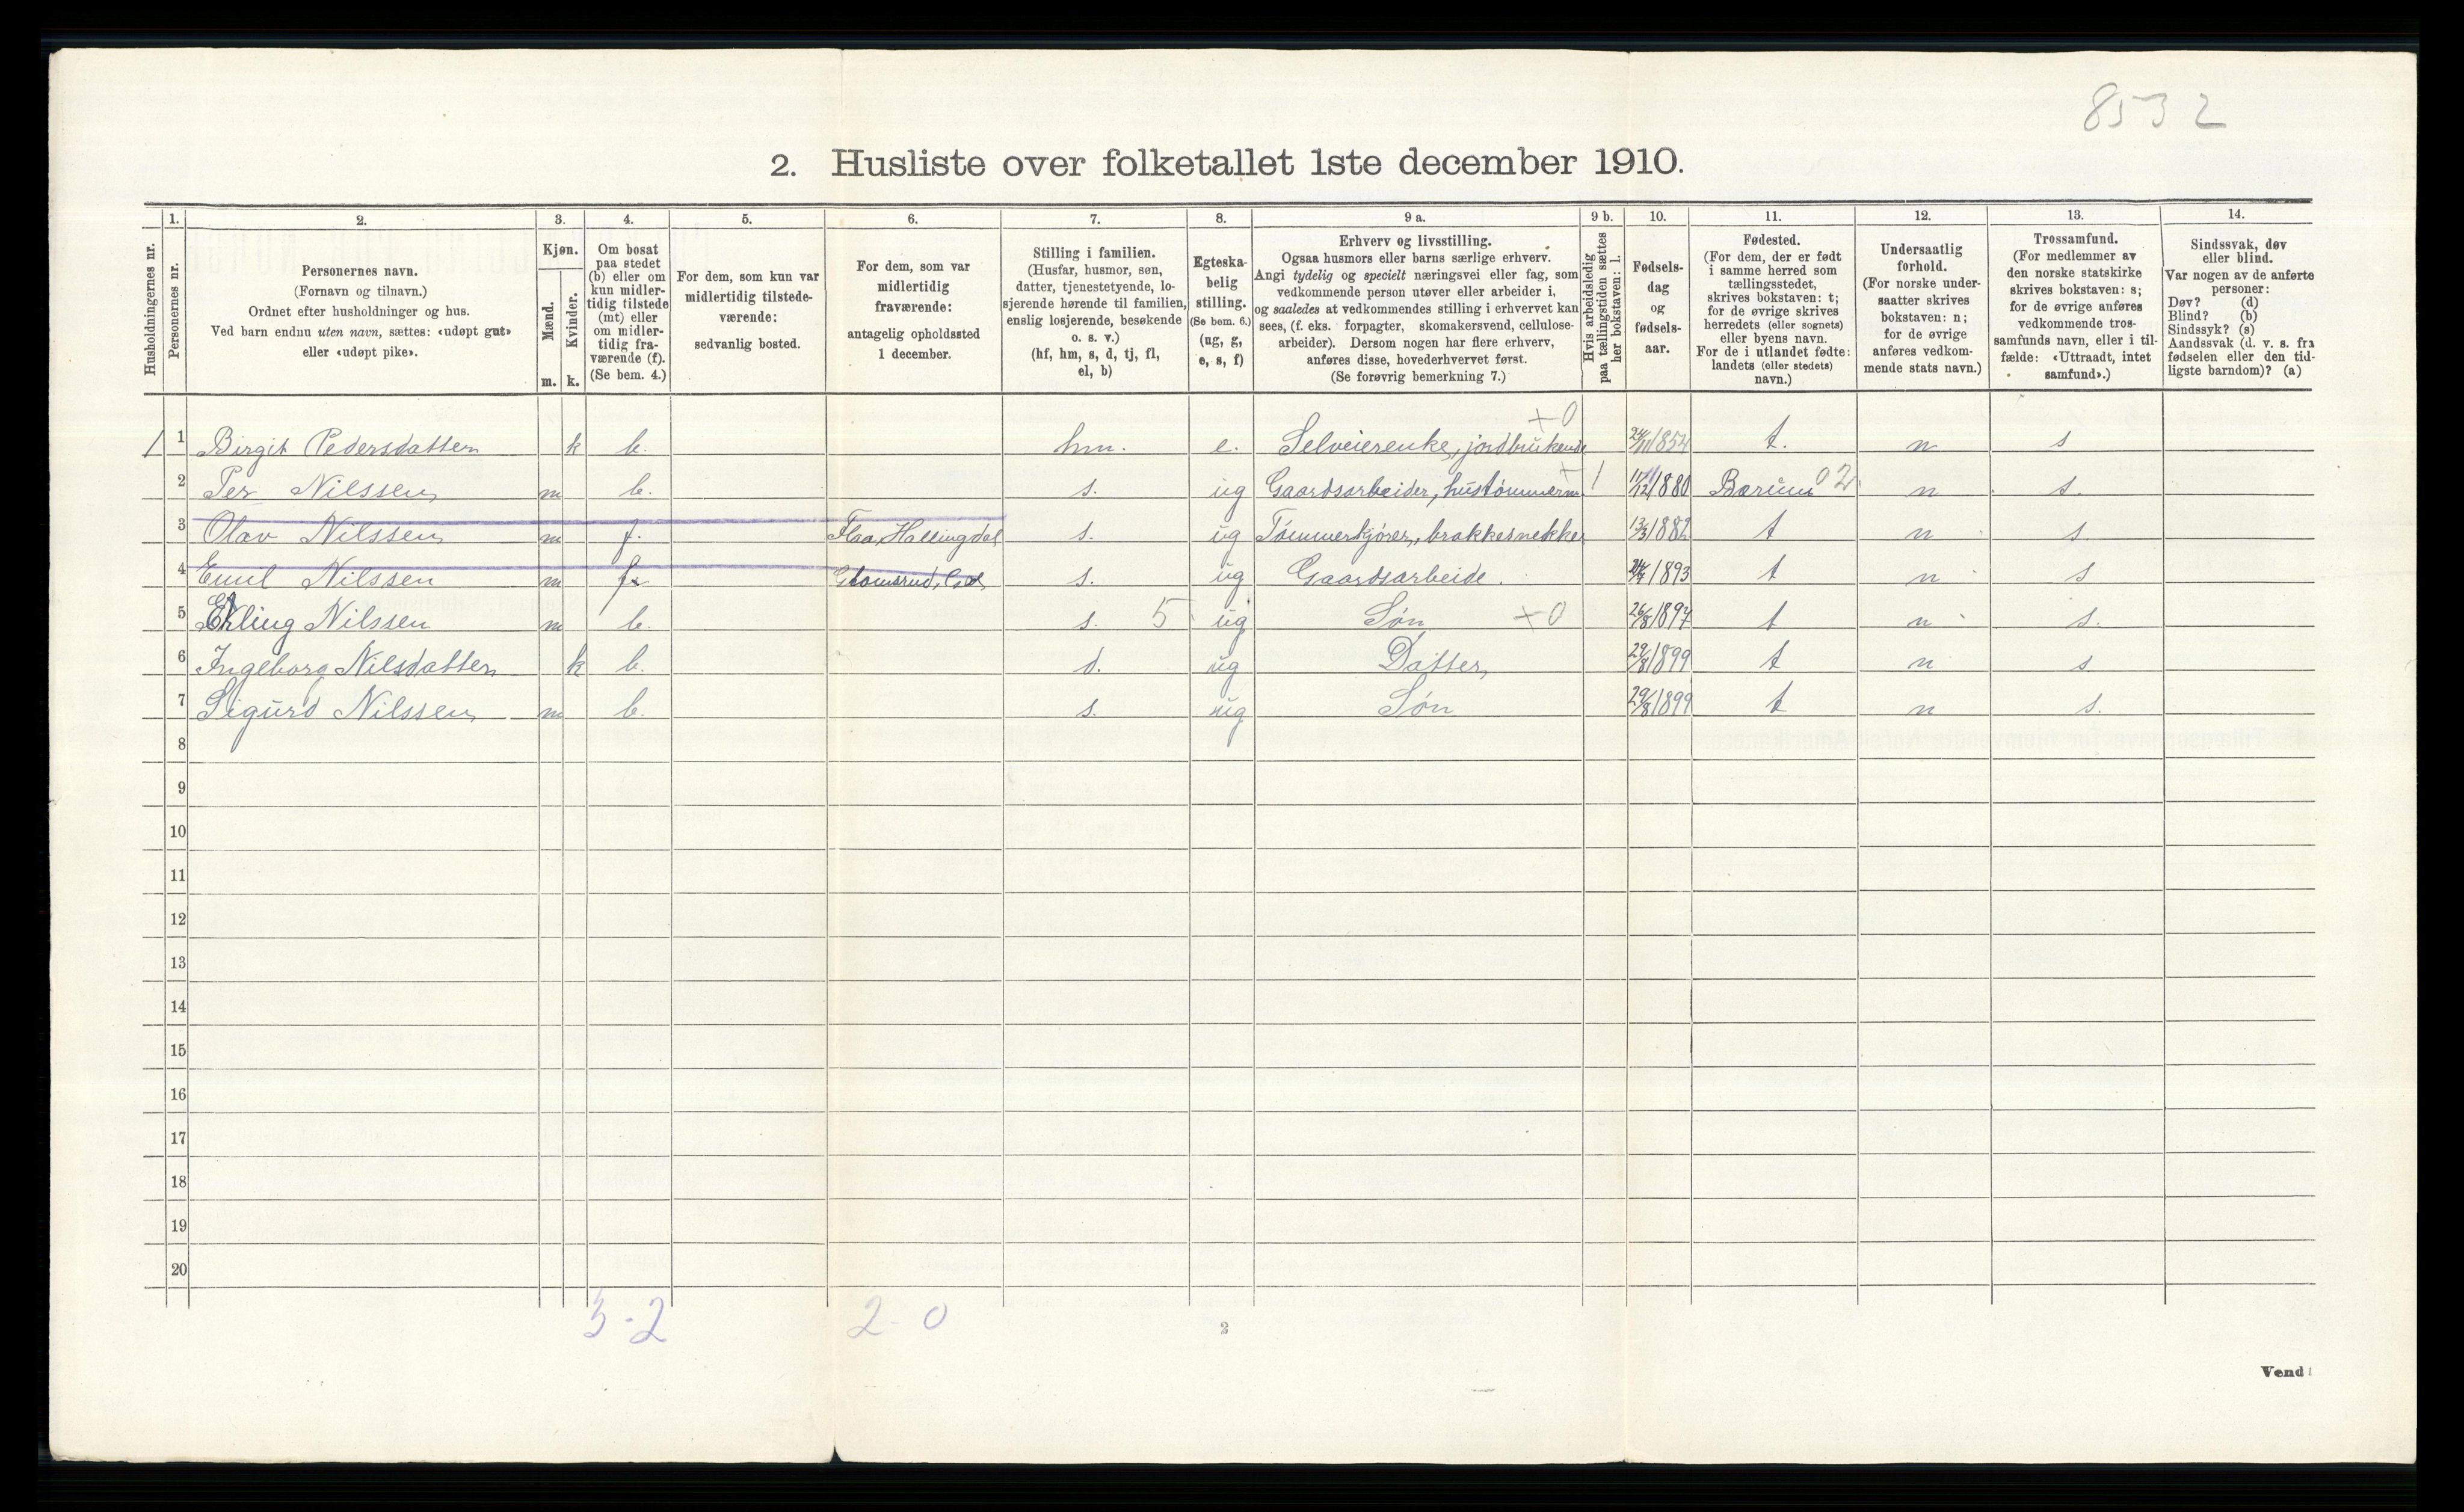 8532
2. Husliste over folketallet 1ste december 1910.
Husholdningernes nr.
1.
Personernes nr.
2.
Personernes navn.
(Fornavn og tilnavn.)
Ordnet efter husholdninger og hus.
Ved barn endnu uten navn, sættes: «udøpt gut»
eller «udøpt pike».
3.
Kjøn.
Mænd.
m.
Kvinder.
k.
4.
Om bosat
paa stedet
(b) eller om
kun midler-
tidig tilstede
(mt) eller
om midler-
tidig fra-
værende (f).
(Se bem. 4.)
5.
For dem, som kun var
midlertidig tilstede-
værende:
sedvanlig bosted.
6.
For dem, som var
midlertidig
fraværende:
antagelig opholdssted
1 december.
7.
Stilling i familien.
(Husfar, husmor, søn,
datter, tjenestetyende, lo-
sjerende hørende til familien,
enslig losjerende, besøkende
o. s. v.)
(hf, hm, s, d, tj, fl,
el, b)
8.
Egteska-
belig
stilling.
(Se bem. 6.)
(ug, g,
e, s, f)
9 a.
Erhverv og livsstilling.
Ogsaa husmors eller barns særlige erhverv.
Angi tydelig og specielt næringsvei eller fag, som
vedkommende person utøver eller arbeider i,
og saaledes at vedkommendes stilling i erhvervet kan
sees, (f. eks. forpagter, skomakersvend, cellulose-
arbeider). Dersom nogen har flere erhverv,
anføres disse, hovederhvervet først.
(Se forøvrig bemerkning 7.)
9 b.
Hvis arbeidsledig
paa tællingstiden sættes
her bokstaven: l.
10.
Fødsels-
dag
og
fødsels-
aar.
11.
Fødested.
(For dem, der er født
i samme herred som
tællingsstedet,
skrives bokstaven: t;
for de øvrige skrives
herredets (eller sognets)
eller byens navn.
For de i utlandet fødte:
landets (eller stedets)
navn.)
12.
Undersaatlig
forhold.
(For norske under-
saatter skrives
bokstaven: n;
for de øvrige
anføres vedkom-
mende stats navn.)
13.
Trossamfund.
(For medlemmer av
den norske statskirke
skrives bokstaven: s;
for de øvrige anføres
vedkommende tros-
samfunds navn, eller i til-
fælde: «Uttraadt, intet
samfund».)
14.
Sindssvak, døv
eller blind.
Var nogen av de anførte
personer:
Døv? (d)
Blind? (b)
Sindssyk? (s)
Aandssvak (d. v. s. fra
fødselen eller den tid-
ligste barndom)? (a)
+0
1 1 Birgit Pedersdatter k b. hm. e. Selveierenke, jordbrukende 24/11 1854 t. n s
2 Per Nilssen m b. s. ug Gaardsarbeider, hustømmerm. + 1 11/12 1880 Bærum 02 n s.
3 Olav Nilssen m f. Flaa, Hallingdal s. ug Tømmerkjører, brakkesnekker 13/3 1882 t n s.
4 Emil Nilssen m f s. ug Gaardsarbeide. 1893 t n s
5 Erling Nilssen m b. s. 5 ug Søn +0 26/8 1897 t n s.
6 Ingeborg Nilsdatter k b. d. ug Datter 29/8 1899 t n s
7 Sigurd Nilssen m b. s. ug Søn 29/8 1899 t n s.
8
9
10
11
12
13
14
15
16
17
18
19
20
3-2 2-0
2
Vend